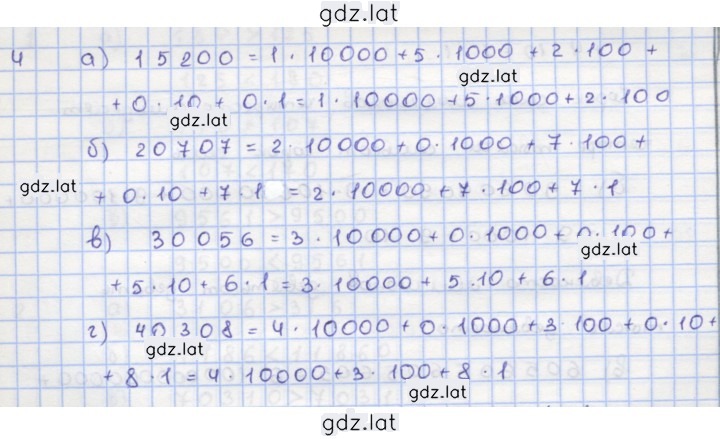 gdz.lat
4 а) 15200 = 1 · 10000 + 5 · 1000 + 2 · 100 +
gdz.lat
+ 0 · 10 + 0 · 1 = 1 · 10000 + 5 · 1000 + 2 · 100
gdz.lat
б) 20707 = 2 · 10000 + 0 · 1000 + 7 · 100 +
gdz.lat
+ 0 · 10 + 7 · 1 = 2 · 10000 + 7 · 100 + 7 · 1
в) 30056 = 3 · 10000 + 0 · 1000 + 0 · 100 +
gdz.lat
+ 5 · 10 + 6 · 1 = 3 · 10000 + 5 · 10 + 6 · 1
г) 40308 = 4 · 10000 + 0 · 1000 + 3 · 100 + 0 · 10 +
gdz.lat
+ 8 · 1 = 4 · 10000 + 3 · 100 + 8 · 1
gdz.lat
gdz.lat